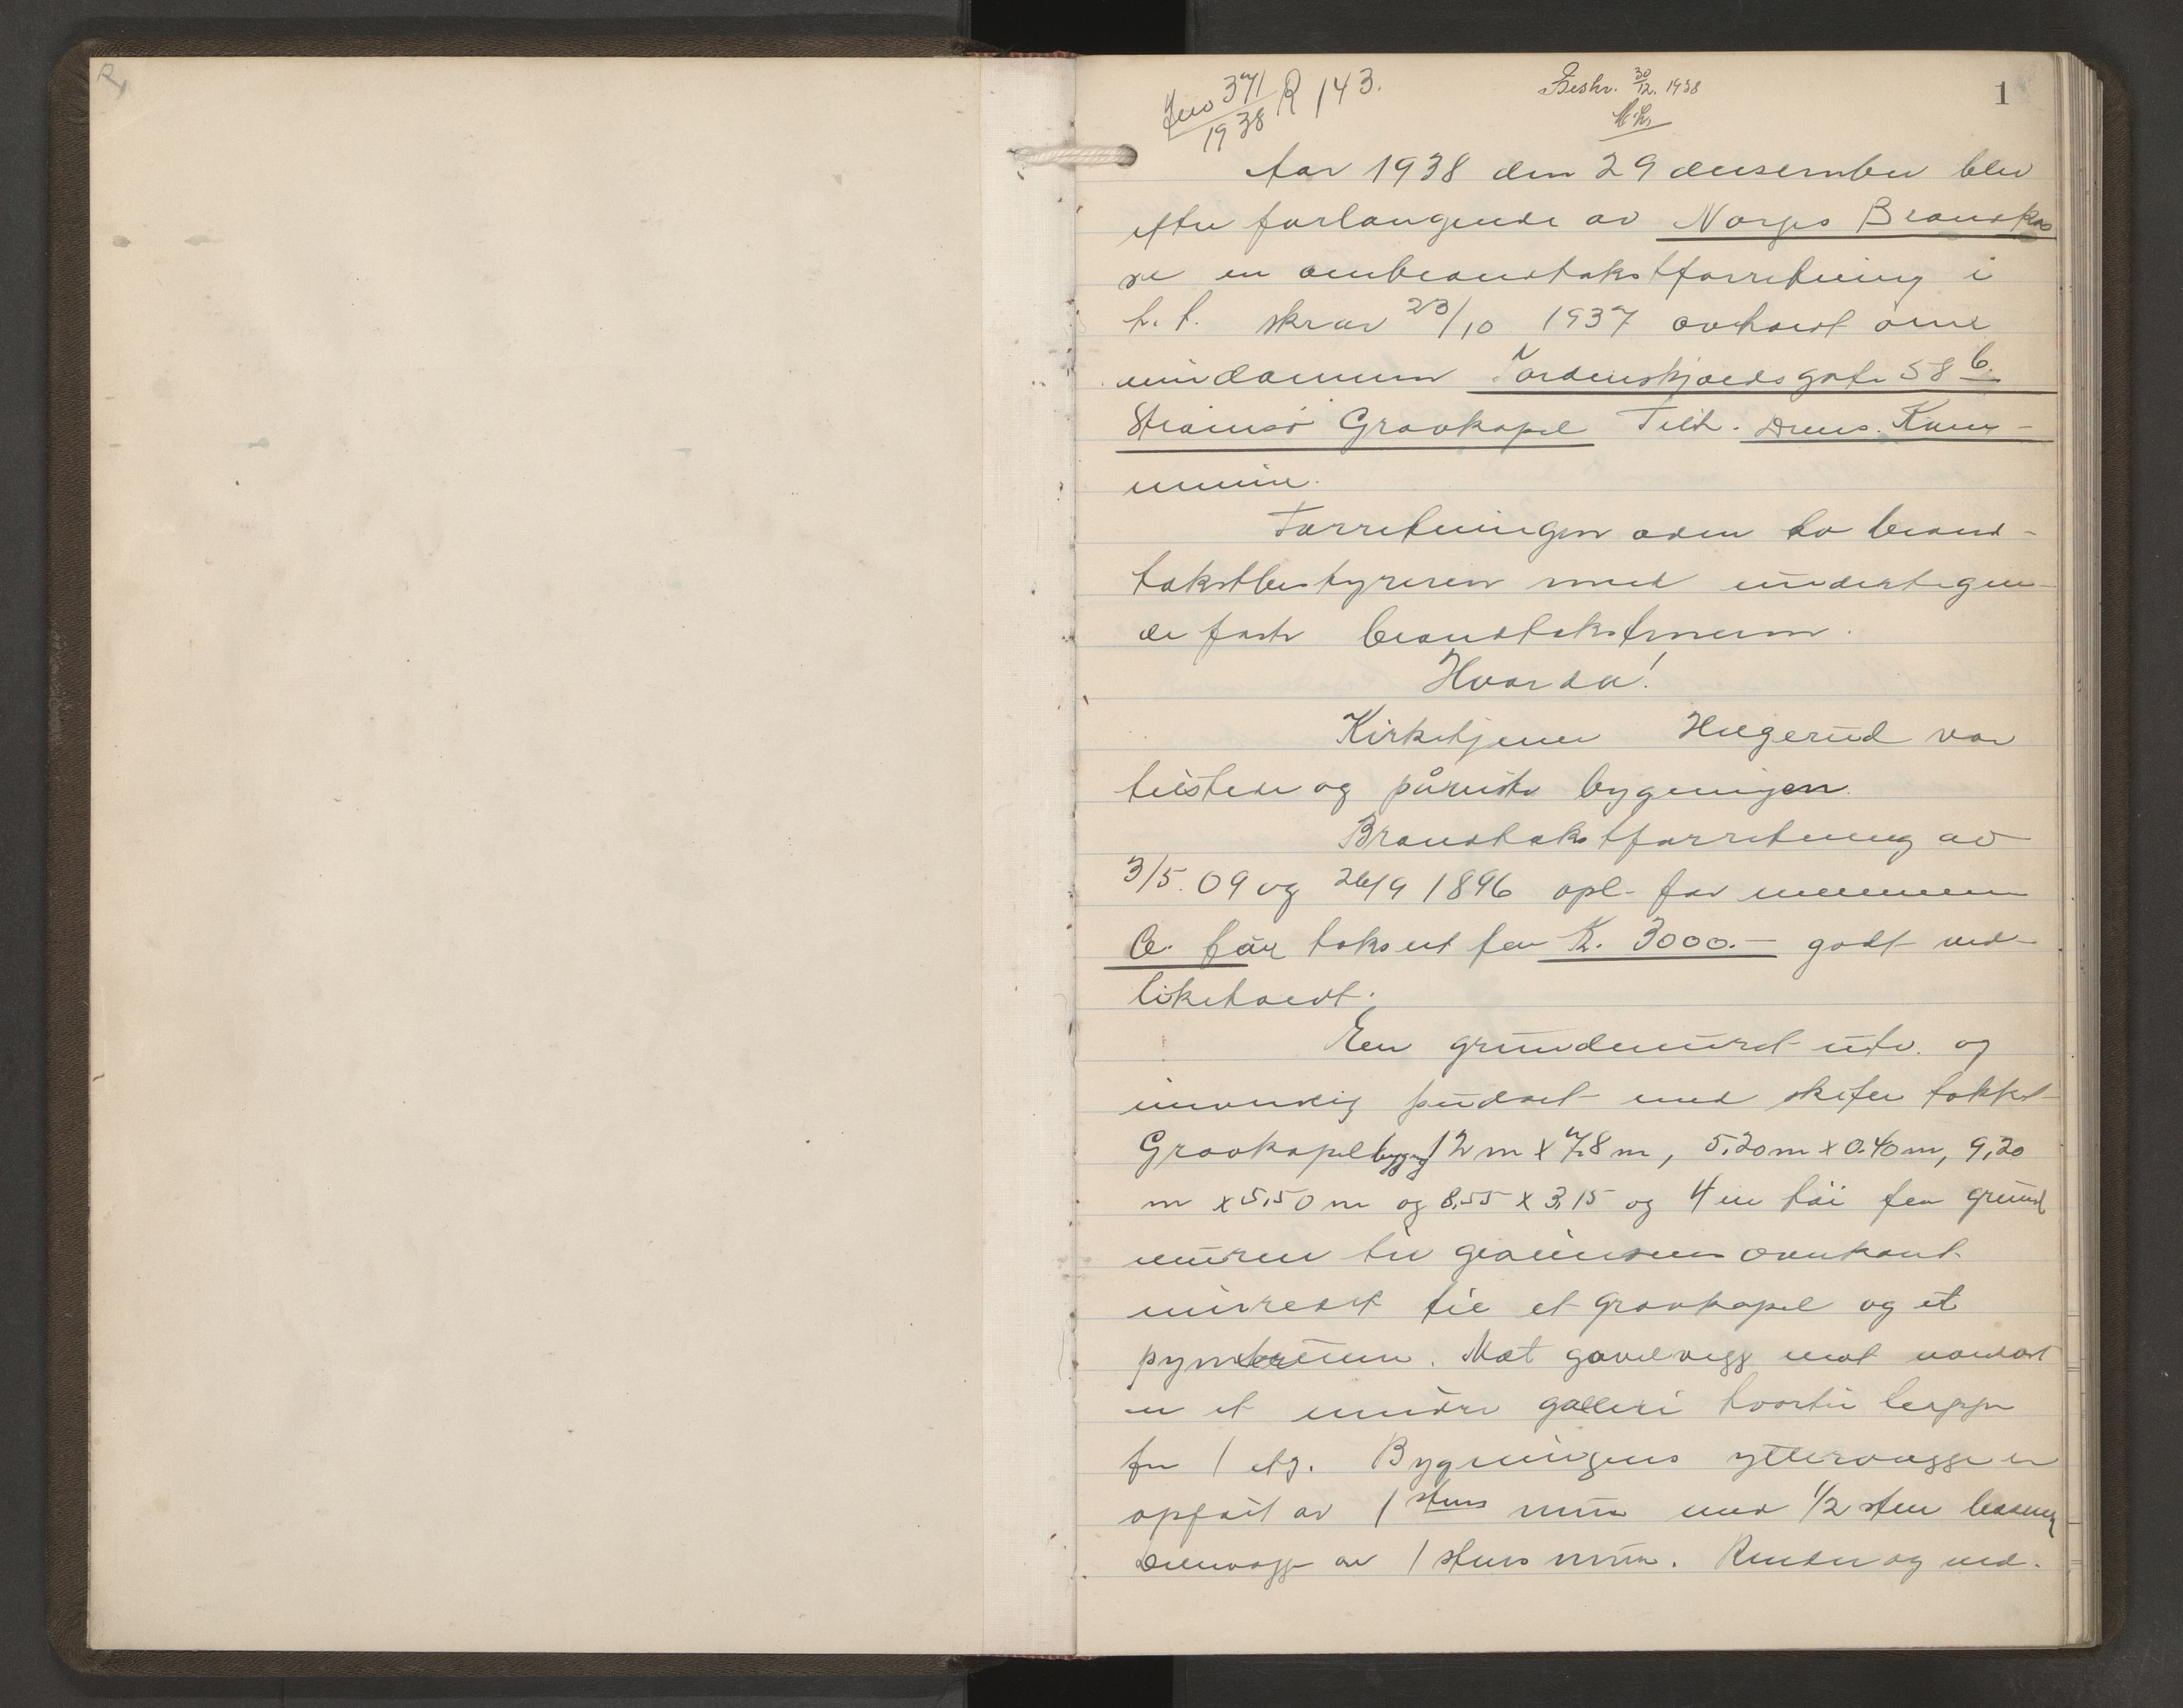 Jno 371/1938 R 143.
Beskr. 30/12. 1938
1
Aar 1938 den 29 desember blev
efter forlangende av Norges Brandkas
se en ombrandtakstforretning i
h.t. skriv 23/10 1937 avholdt over
eiendommen Tordenskjoldsgate 58 b.
Strømsø Gravkapel Tilh. Drms. Kom-
mune.
Forretningen aden to brand-
takstbestyreren med undertegne-
de faste brandtakstmenn.
Hvorda!
Kirketjener Hægerud var
tilstede og påviste bygningen.
Brandtakstforretning av
3/5. 09 og 26/9 1896 opl. for
før takseret for Kr. 3000.- godt ved-
likeholdt.
En grundmuret utv. og
innvendig pudset med skifer tækket
Gravkapelbygg 12 m x 7,8 m, 5,20 m x 0.40 m, 9,20
m x 5,50 m og 8,55 x 3,15 og 4 m høi fra grund
muren til gesimsens overkant
innredet til et gravkapel og et
pynterum. Mot gavlvegg mot nordost
er et mindre galleri hvortil trappe
fra 1 etg. Bygningens yttervegger er
opført av 1 stens mur med 1/2 sten
Delevegge av 1 stens mur. Render og ned-